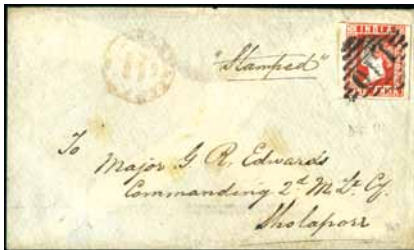 "Stamped"
INDIA
To
Major G. R. Edwards
Commanding 2d. M. Lt. Cy.
Sholapore